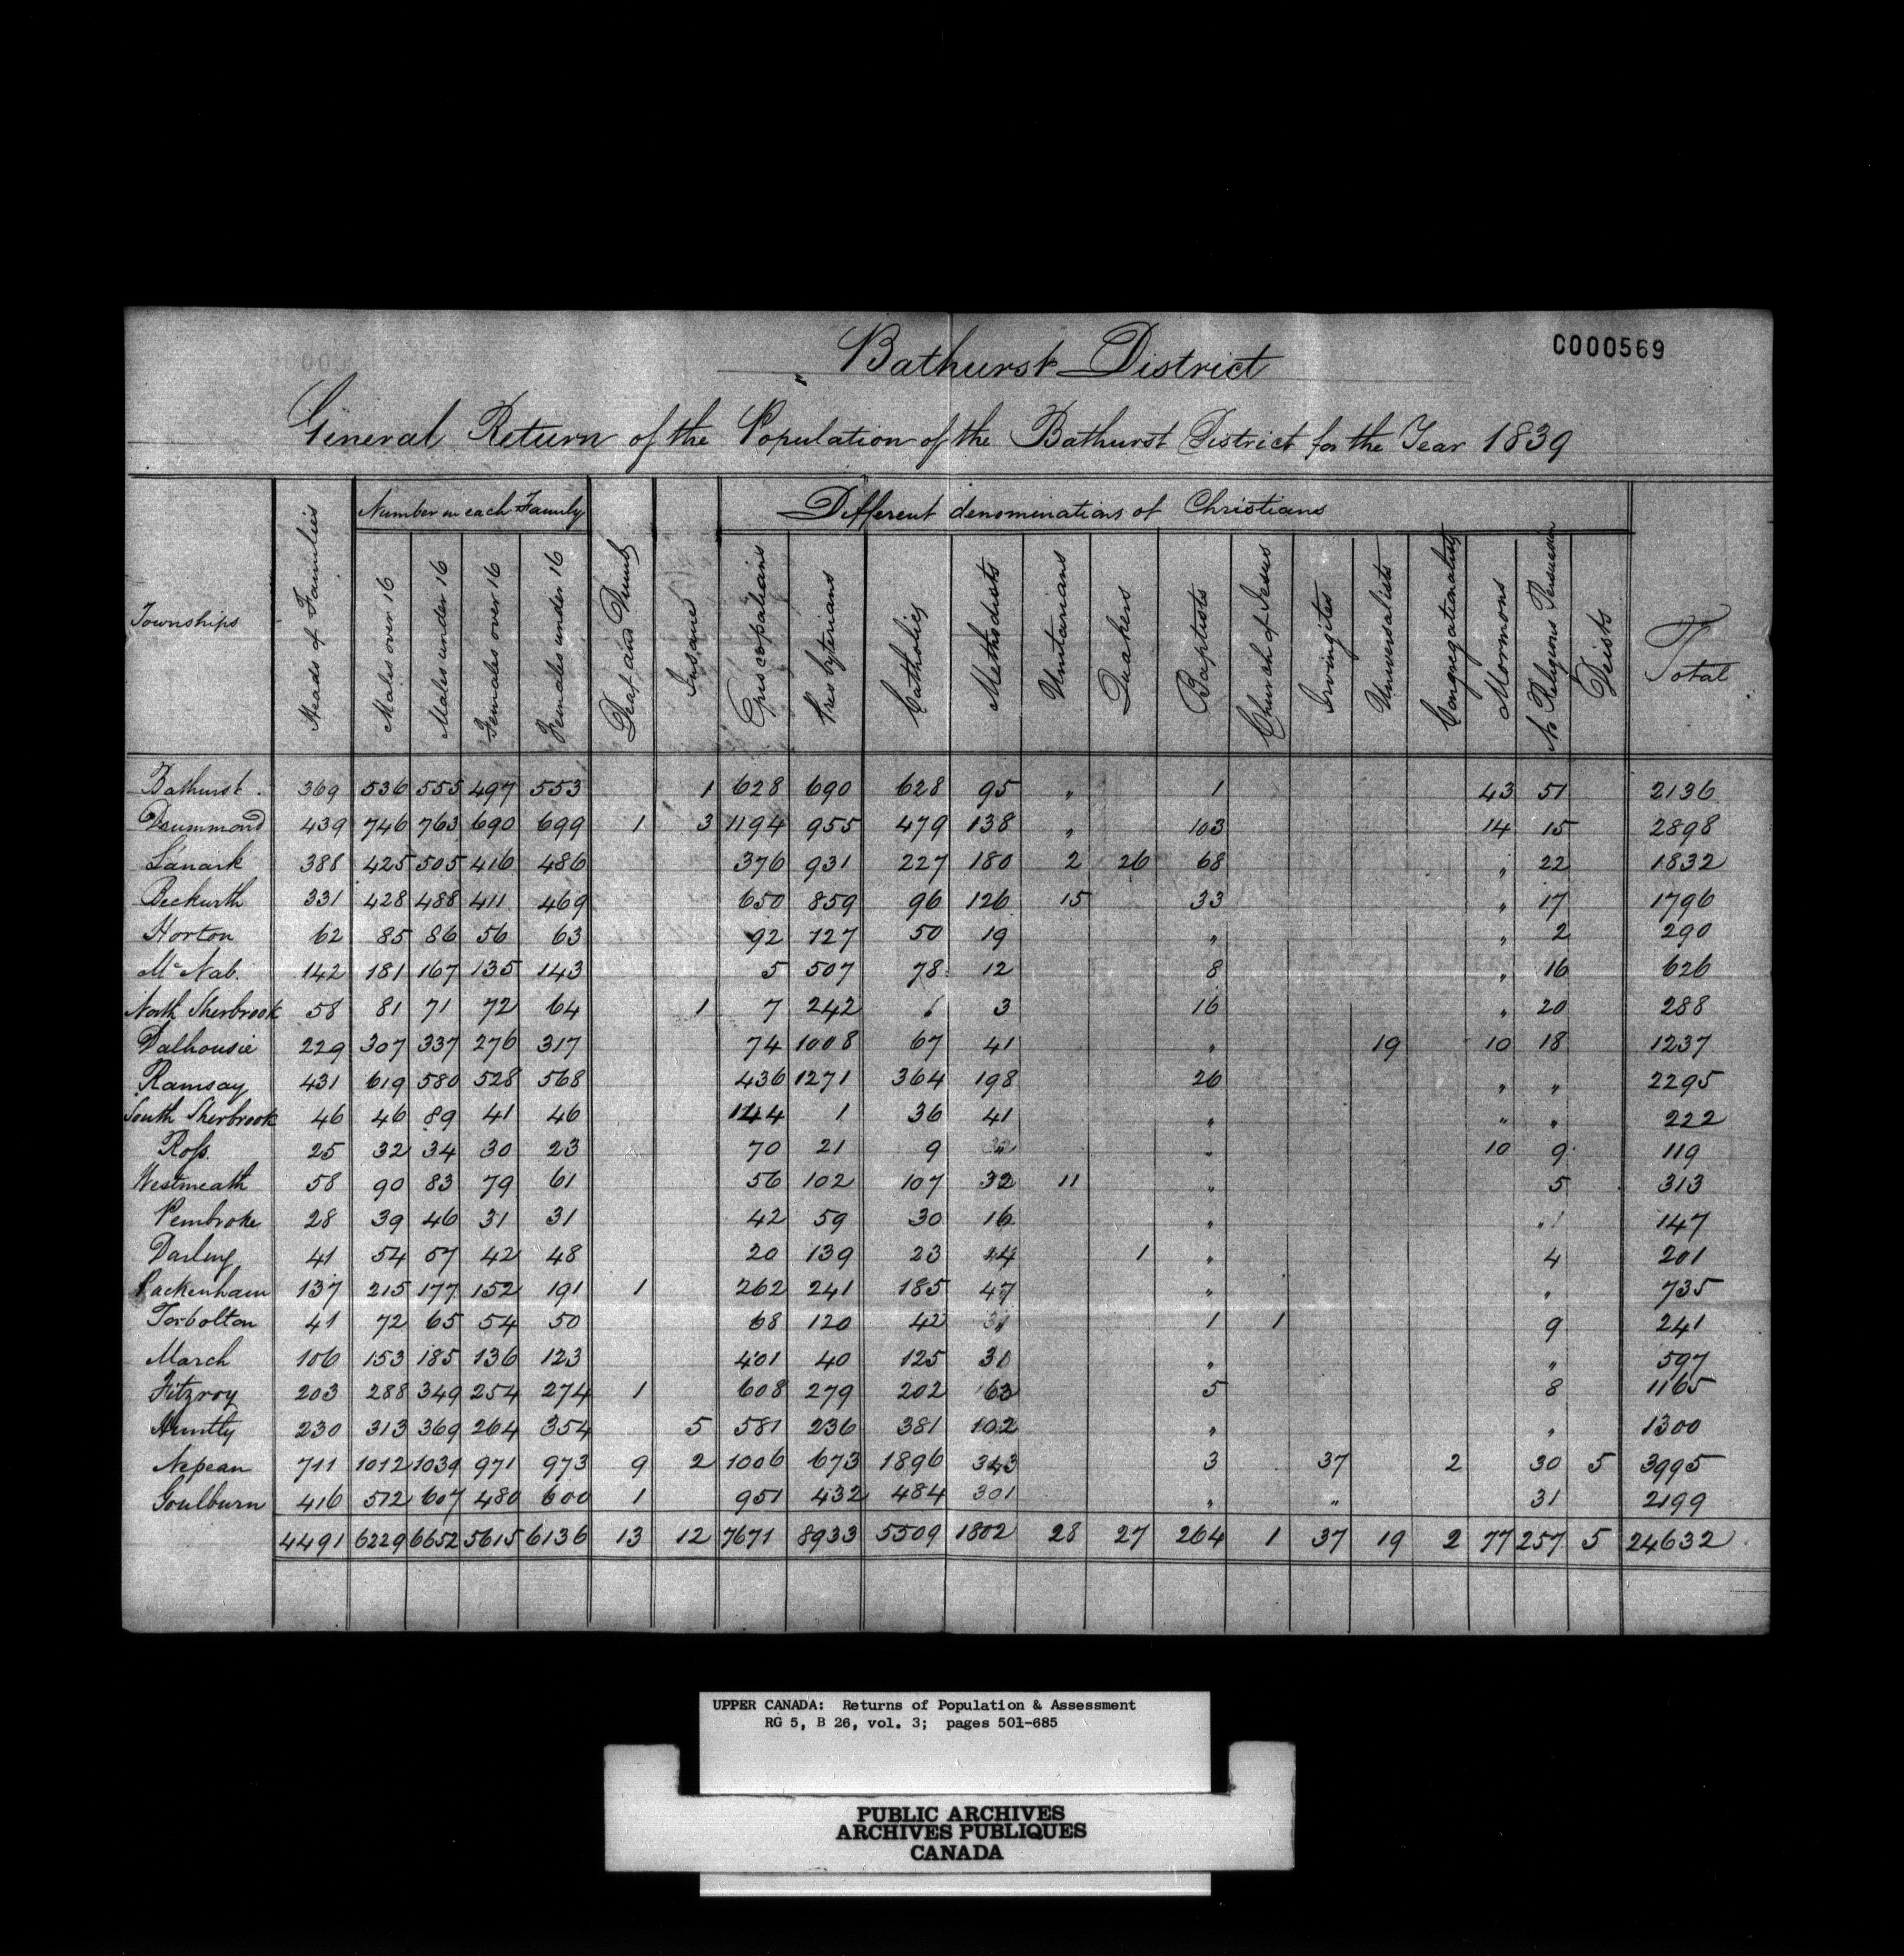 C000569
Bathurst District
General Return of the Population of the Bathurst District for the Year 1839
Townships
Heads of Families
Number in each Family
Males over 16
Males under 16
Females over 16
Females under 16
Deaf and Dumb
Insane
Different denominations of Christians
Episcopalians
Presbyterians
Catholics
Methodists
Unitarians
Quakers
Baptists
Church of Jesus
Irvingites
Universalists
Congregationalists
Mormons
No Religious Persuasion
Deists
Total
Bathurst 369 536 555 497 553 1 628 690 628 95 " 1 43 51 2136
Drummond 439 746 763 690 699 1 3 1194 955 479 138 " 103 14 15 2898
Lanark 388 425 505 416 486 376 931 227 180 2 26 68 " 22 1832
Beckwith 331 428 488 411 469 650 859 96 126 15 33 " 17 1796
Horton 62 85 86 56 63 92 127 50 19 " " 2 290
McNab. 142 181 167 135 143 5 507 78 12 8 " 16 626
North Sherbrook 58 81 71 72 64 1 7 242 " 3 16 " 20 288
Dalhousie 229 307 337 276 317 74 1008 67 41 " 19 10 18 1237
Ramsay 431 619 580 528 568 436 1271 364 198 26 " " 2295
South Sherbrook 46 46 89 41 46 144 1 36 41 " " " 222
Ross. 25 32 34 30 23 70 21 9 " 10 9 119
Westmeath 58 90 83 79 61 56 102 107 32 11 " 5 313
Pembroke 28 39 46 31 31 42 59 30 16 " " 147
Darling 41 54 57 42 48 20 139 23 14 1 " 4 201
Packenham 137 215 177 152 191 1 262 241 185 47 " " 735
Torbolton 41 72 65 54 50 68 120 42 1 1 9 241
March 106 153 185 136 123 401 40 125 31 " " 597
Fitzroy 203 288 349 254 274 1 608 279 202 63 5 8 1165
Huntly 230 313 369 264 354 5 581 236 381 102 " " 1300
Nepean 711 1012 1039 971 973 9 2 1006 673 1896 343 3 37 2 30 5 3995
Goulburn 416 512 607 480 600 1 951 432 484 301 " " 31 2199
4491 6229 6652 5615 6136 13 12 7671 8933 5509 1802 28 27 264 1 37 19 2 77 257 5 24632
UPPER CANADA: Returns of Population & Assessment
RG 5, B 26, vol. 3; pages 501-685
PUBLIC ARCHIVES
ARCHIVES PUBLIQUES
CANADA